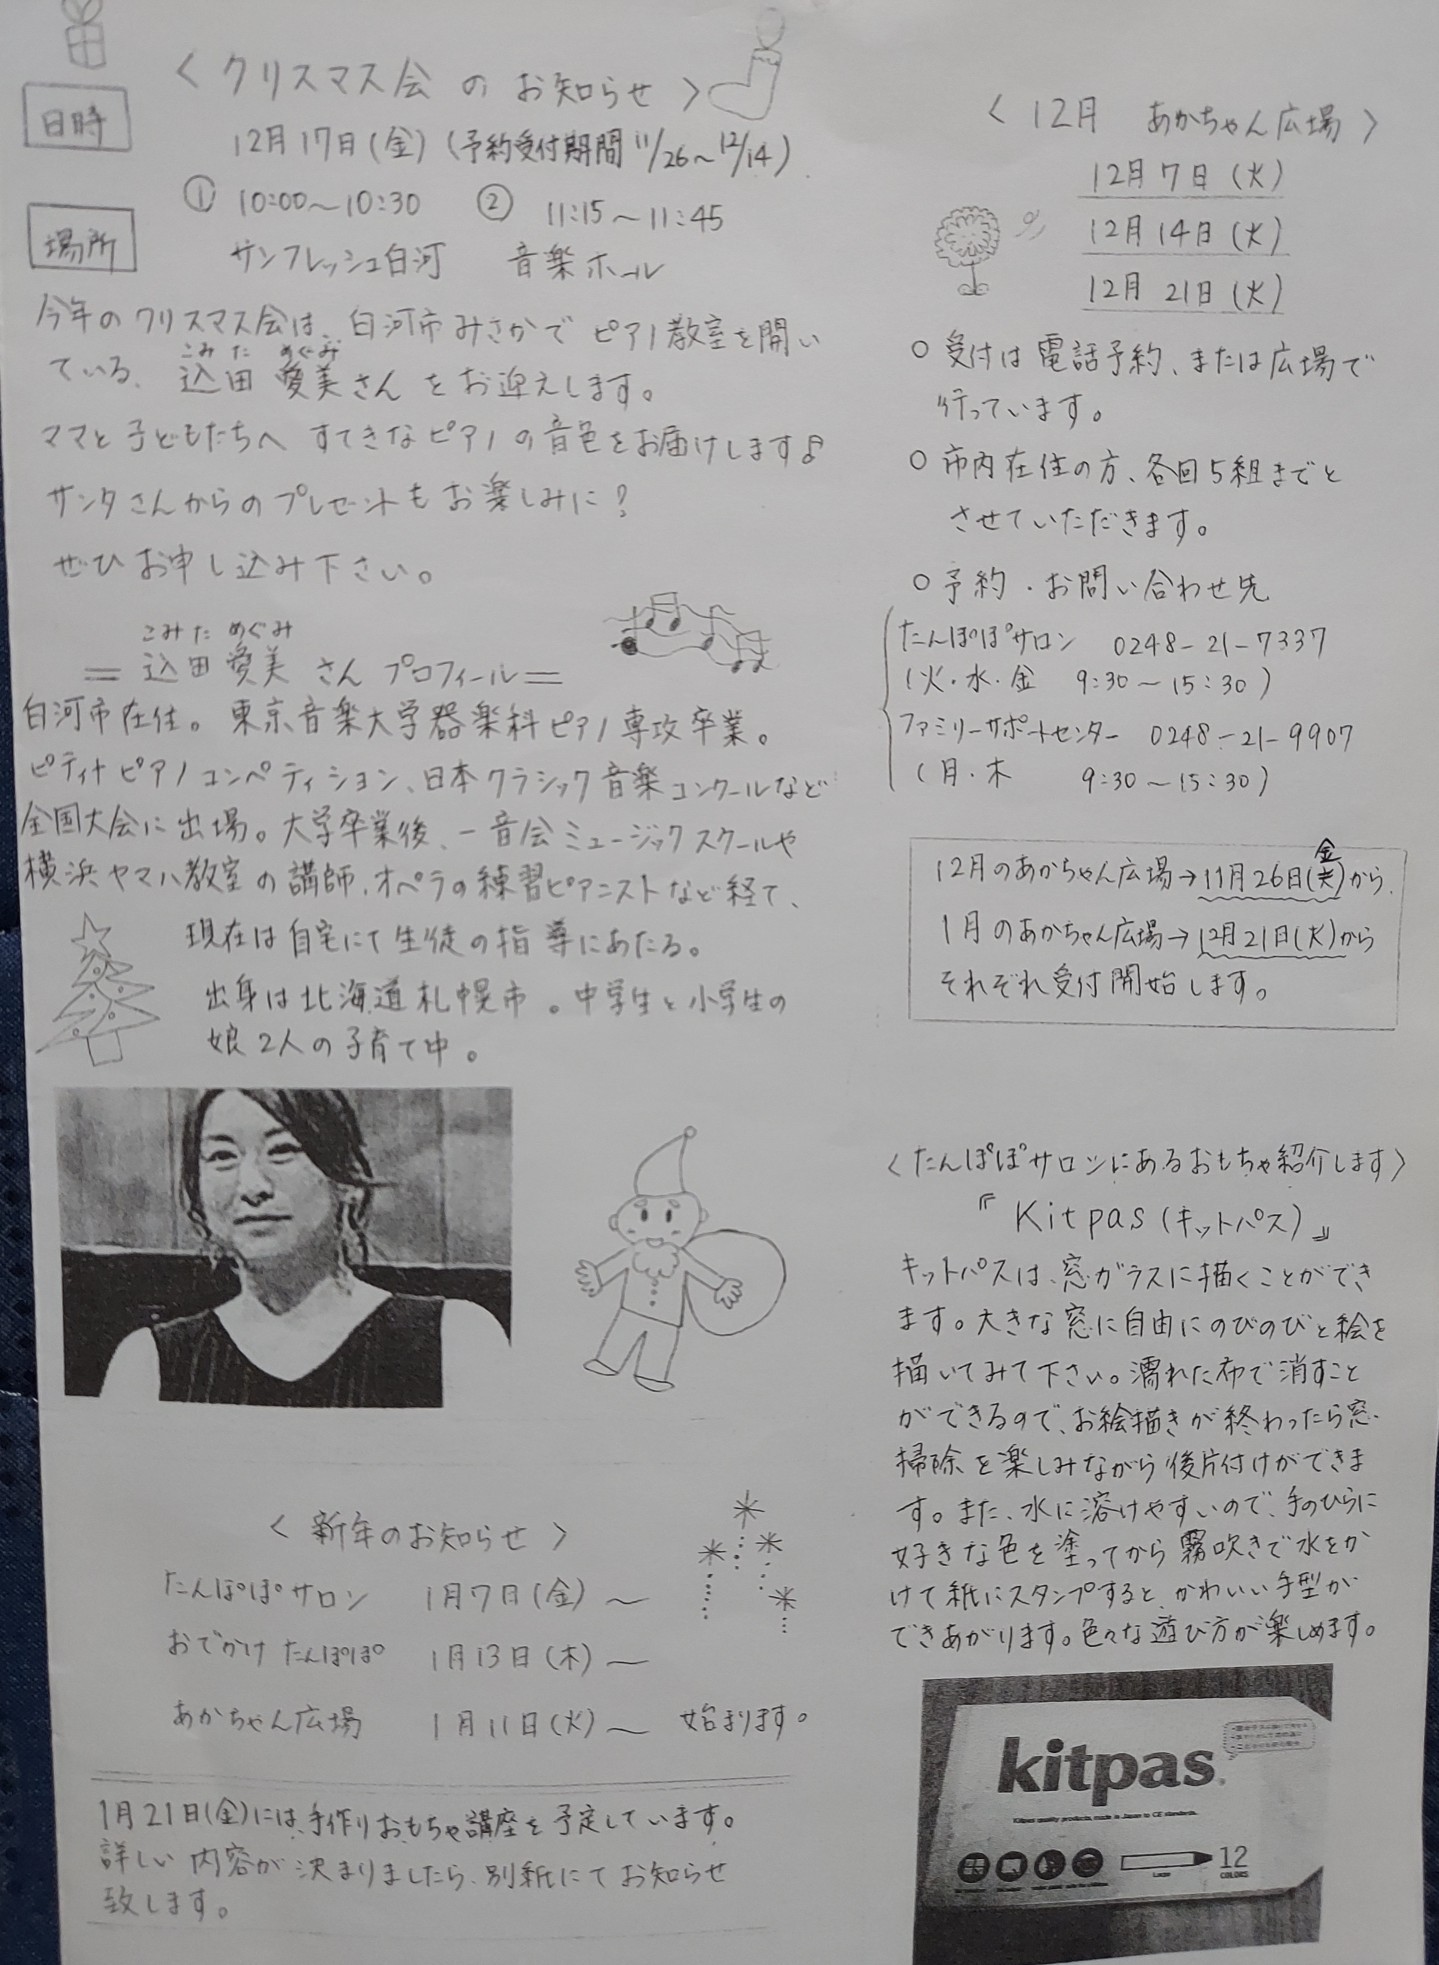 〈クリスマス会のお知らせ〉
日時
12月17日(金)(予約受付期間 11/26～12/14)
① 10:00～10:30 ② 11:15～11:45
場所
サンフレッシュ白河 音楽ホール
今年のクリスマス会は、白河市みさかでピアノ教室を開い
こみた めぐみ
ている、込田 愛美さんをお迎えします。
ママと子どもたちへ すてきなピアノの音色をお届けします♪
サンタさんからのプレゼントもお楽しみに?
ぜひお申し込み下さい。
こみた めぐみ
＝込田 愛美さん プロフィール＝
白河市在住。東京音楽大学器楽科ピアノ専攻卒業。
ピティナピアノコンペティション、日本クラシック音楽コンクールなど
全国大会に出場。大学卒業後、一音会ミュージックスクールや
横浜ヤマハ教室の講師、オペラの練習ピアニストなど経て、
現在は自宅にて生徒の指導にあたる。
出身は北海道札幌市。中学生と小学生の
娘2人の子育て中。
〈新年のお知らせ〉
たんぽぽサロン 1月7日(金)～
おでかけたんぽぽ 1月13日(木)～
あかちゃん広場 1月11日(火)～ 始まります。
1月21日(金)には、手作りおもちゃ講座を予定しています。
詳しい内容が決まりましたら、別紙にてお知らせ
致します。
〈12月 あかちゃん広場〉
12月7日(火)
12月14日(火)
12月21日(火)
○受付は電話予約、または広場で
行っています。
○市内在住の方、各回5組までと
させていただきます。
○予約・お問い合わせ先
たんぽぽサロン 0248-21-7337
(火・水・金 9:30～15:30)
ファミリーサポートセンター 0248-21-9907
(月・木 9:30～15:30)
12月のあかちゃん広場→11月26日(金)から、
1月のあかちゃん広場→12月21日(火)から
それぞれ受付開始します。
〈たんぽぽサロンにあるおもちゃ紹介します〉
『Kitpas(キットパス)』
キットパスは、窓ガラスに描くことができ
ます。大きな窓に自由にのびのびと絵を
描いてみて下さい。濡れた布で消すこと
ができるので、お絵描きが終わったら窓
掃除を楽しみながら後片付けができま
す。また、水に溶けやすいので、手のひらに
好きな色を塗ってから霧吹きで水をか
けて紙にスタンプすると、かわいい手型が
できあがります。色々な遊び方が楽しめます。
kitpas
Kitpas quality products made in Japan to CE standards.
12
COLORS